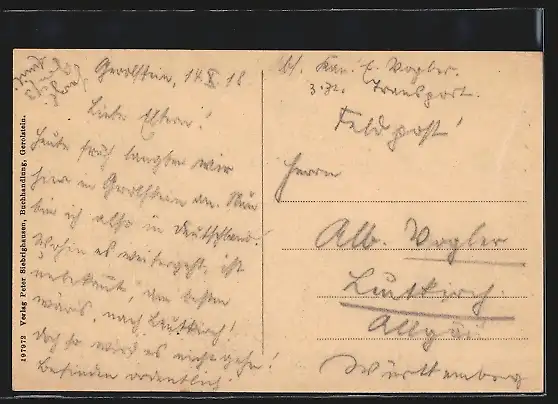 Gerolstein, 14.X.18
Liebe Eltern!
Heute früh langten wir
hier in Gerolstein an. Nun
bin ich also in Deutschland.
Wohin es weitergeht, ist
unbekannt, am besten
wär's, nach Leutkirch!
Doch so wird es nicht gehen!
Befinden ordentlich!
Abs. Kan. E. Vogler.
Transport.
Feldpost!
Herrn
Alb. Vogler
Leutkirch
Allgäu
Württemberg
197972 Verlag Peter Siebrighausen, Buchhandlung, Gerolstein.